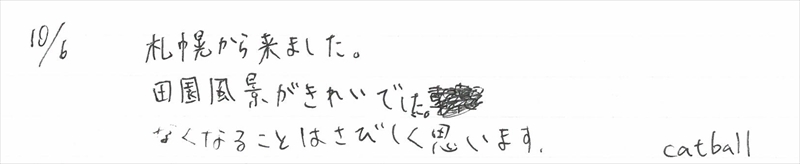 10/6 札幌から来ました。
田園風景がきれいでした。
なくなることはさびしく思います.
catball